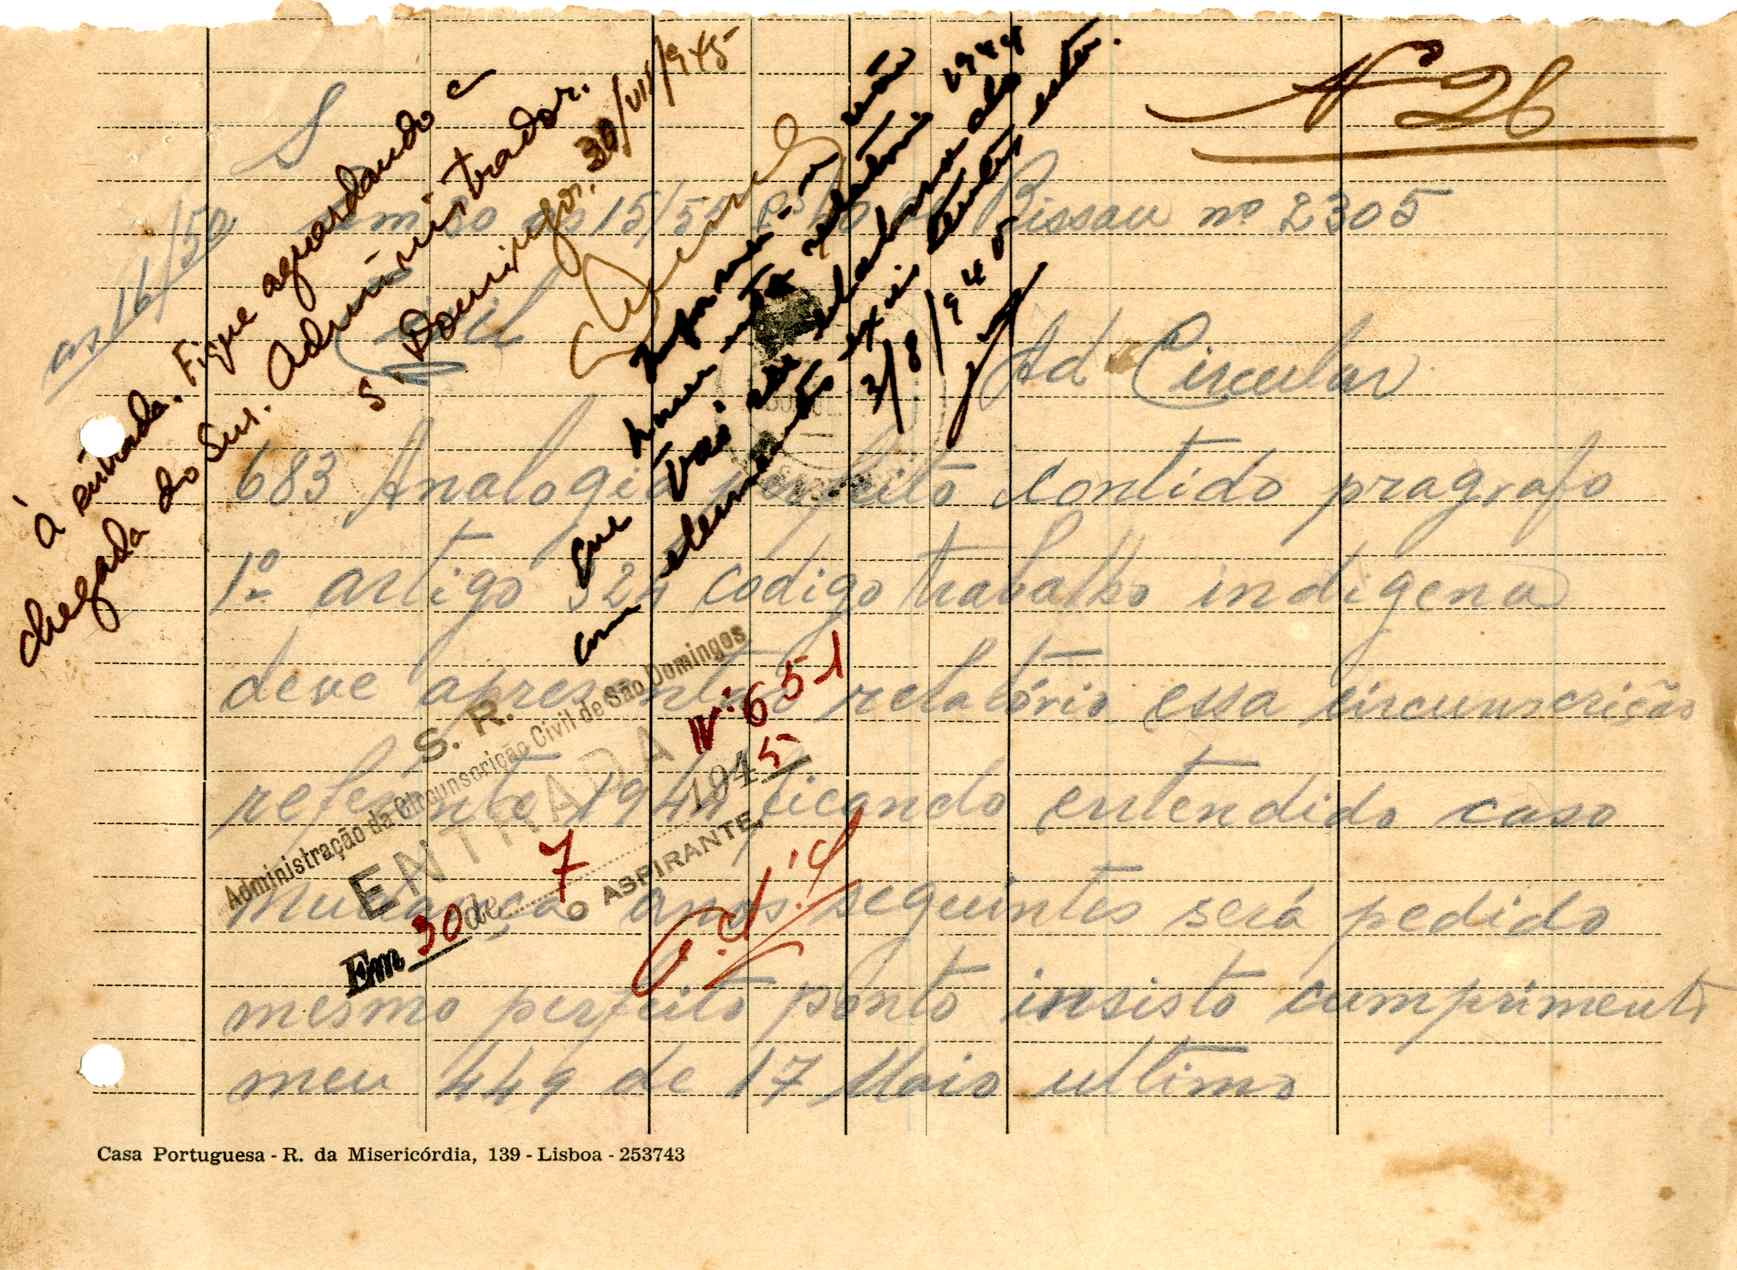 Nº 26
S
as 16/50
as 15/50
Bissau nº 2305
Civil
Ad Circular
683 Analogia perfeito contido pragrafo
1º artigo 324 codigo trabalho indigena
deve apresentar relatório essa circunscrição
referente 1944 ficando entendido caso
mudança anos seguintes será pedido
mesmo perfeito ponto insisto cumprimento
meu 449 de 17 Maio ultimo
à entrada. Fique aguardando a
chegada do Snr. Administrador.
S. Domingos, 30/VII/945
Informe-se não
houve relatório 1944
que vai ser elaborado
com elementos
3/8/945
S. R.
Administração da Circunscrição Civil de São Domingos
ENTRADA Nº 651
Em 30 de 7 1945
O ASPIRANTE,
Casa Portuguesa - R. da Misericórdia, 139 - Lisboa - 253743